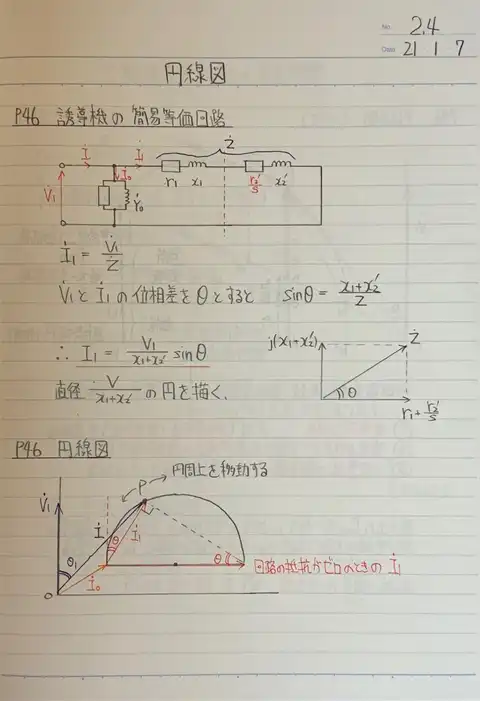 No. 2.4
Date 21 1 7
円線図
P46 誘導機の簡易等価回路
Ż
İ İ₁
İ₀
V̇₁ Ẏ₀ r₁ x₁ r₂'/s x₂'
İ₁ = V̇₁/Ż
V̇₁とİ₁の位相差をθとすると sinθ = (x₁+x₂')/Z
∴ I₁ = V₁/(x₁+x₂') sinθ
直径 V̇/(x₁+x₂') の円を描く、
j(x₁+x₂') Ż
θ
r₁+r₂'/s
P46 円線図
P → 円周上を移動する
V̇₁ İ θ İ₁
θ₁ İ₀ θ 回路の抵抗がゼロのときの İ₁
O